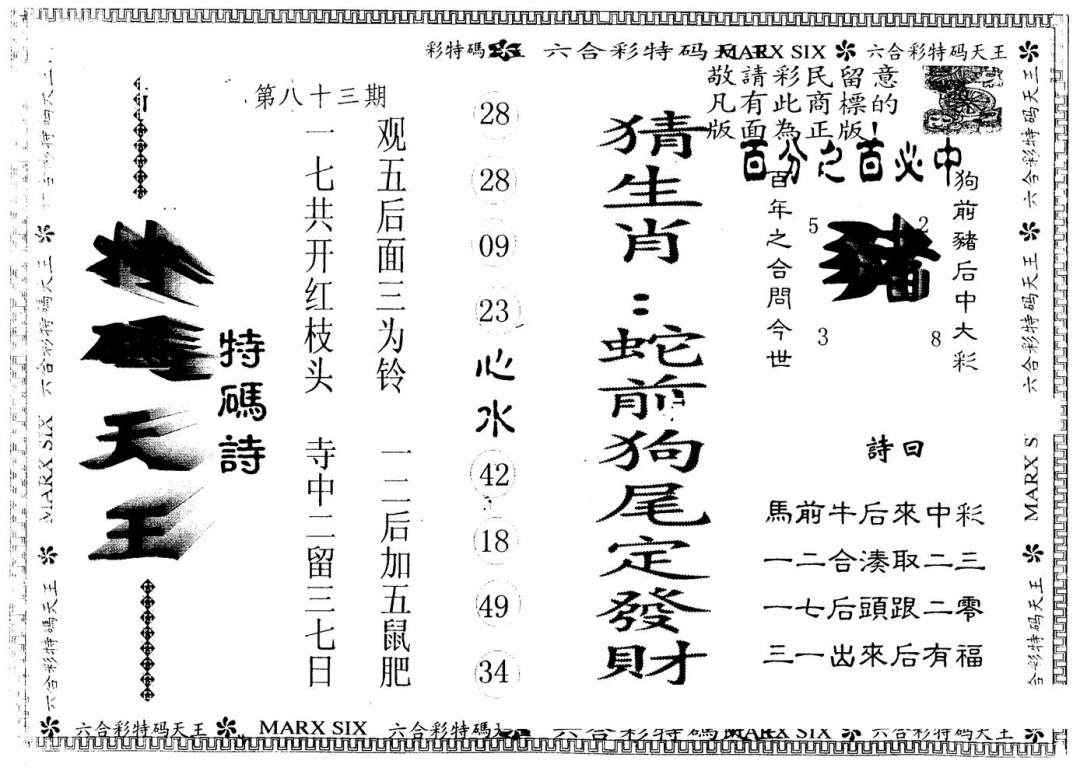 彩特碼
六合彩特码天王
MARX SIX
六合彩特码天王
敬請彩民留意
凡有此商標的
版面為正版!
百分之百必中
狗前豬后中大彩
豬
5
2
3
8
百年之合問今世
詩曰
馬前牛后來中彩
一二合湊取二三
一七后頭跟二零
三一出來后有福
猜生肖:蛇前狗尾定發財
28
28
09
23
心水
42
18
49
34
第八十三期
观五后面三为铃 一二后加五鼠肥
一七共开红枝头 寺中二留三七日
特碼詩
特碼天王
六合彩特码天王
MARX SIX
六合彩特码天王
六合彩特码天王
六合彩特码天王
MARX S
合彩特码天王
六合彩特码天王
MARX SIX
六合彩特碼
六合彩特码
MARX SIX
六合彩特码天王